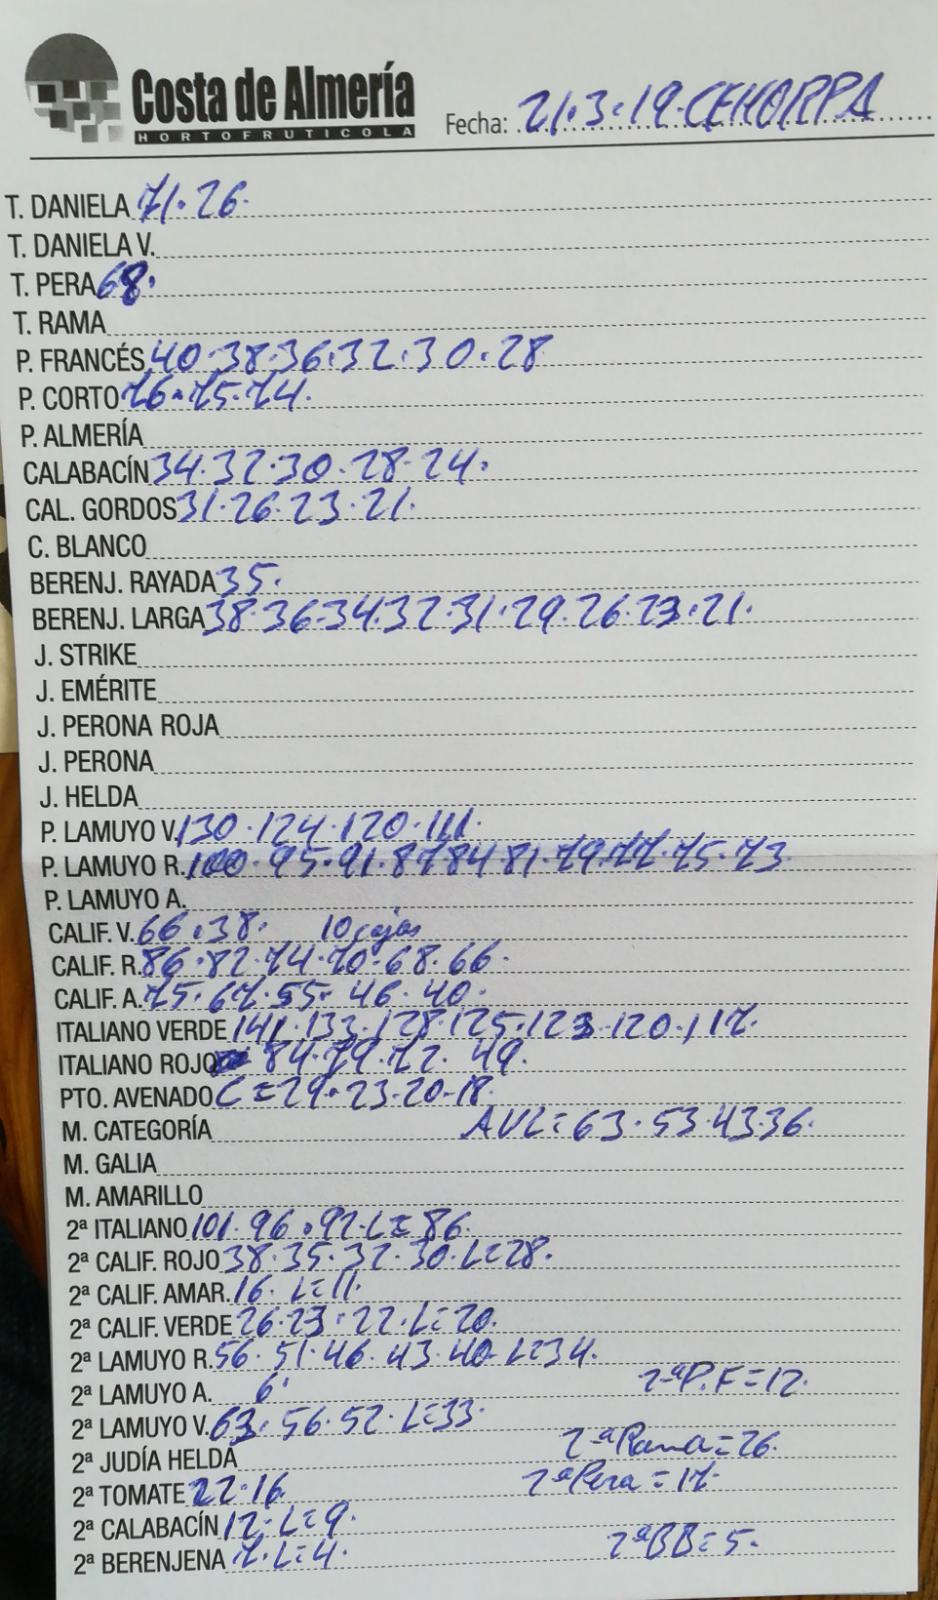 Costa de Almería
HORTOFRUTICOLA
Fecha: 21.3.19.CEHORPA
T. DANIELA 71.26.
T. DANIELA V.
T. PERA 68.
T. RAMA
P. FRANCÉS 40.38.36.32.30.28
P. CORTO 76.75.74.
P. ALMERÍA
CALABACÍN 34.32.30.28.24.
CAL. GORDOS 31.26.23.21.
C. BLANCO
BERENJ. RAYADA 35.
BERENJ. LARGA 38.36.34.32.31.29.26.23.21.
J. STRIKE
J. EMÉRITE
J. PERONA ROJA
J. PERONA
J. HELDA
P. LAMUYO V. 130.124.120.111.
P. LAMUYO R. 100.95.91.87.84.81.79.77.75.73
P. LAMUYO A.
CALIF. V. 66.38. 10 cajas
CALIF. R. 86.82.74.70.68.66.
CALIF. A. 75.67.55.46.40.
ITALIANO VERDE 141.133.128.125.123.120.117.
ITALIANO ROJO 84.79.72.49.
PTO. AVENADO C=29.23.20.18.
M. CATEGORÍA AVL=63.53.43.36.
M. GALIA
M. AMARILLO
2ª ITALIANO 101.96.92.L=86.
2ª CALIF. ROJO 38.35.32.30.L=28.
2ª CALIF. AMAR. 16. L=11.
2ª CALIF. VERDE 26.23.22.L=20.
2ª LAMUYO R. 56.51.46.43.40.L=34.
2ª LAMUYO A. 6. 2ªP.F=12.
2ª LAMUYO V. 63.56.52.L=33.
2ª JUDÍA HELDA 2ªRama=26.
2ª TOMATE 22.16. 2ªPera=17.
2ª CALABACÍN 12.L=9.
2ª BERENJENA 7.L=4. 2ªBB=5.